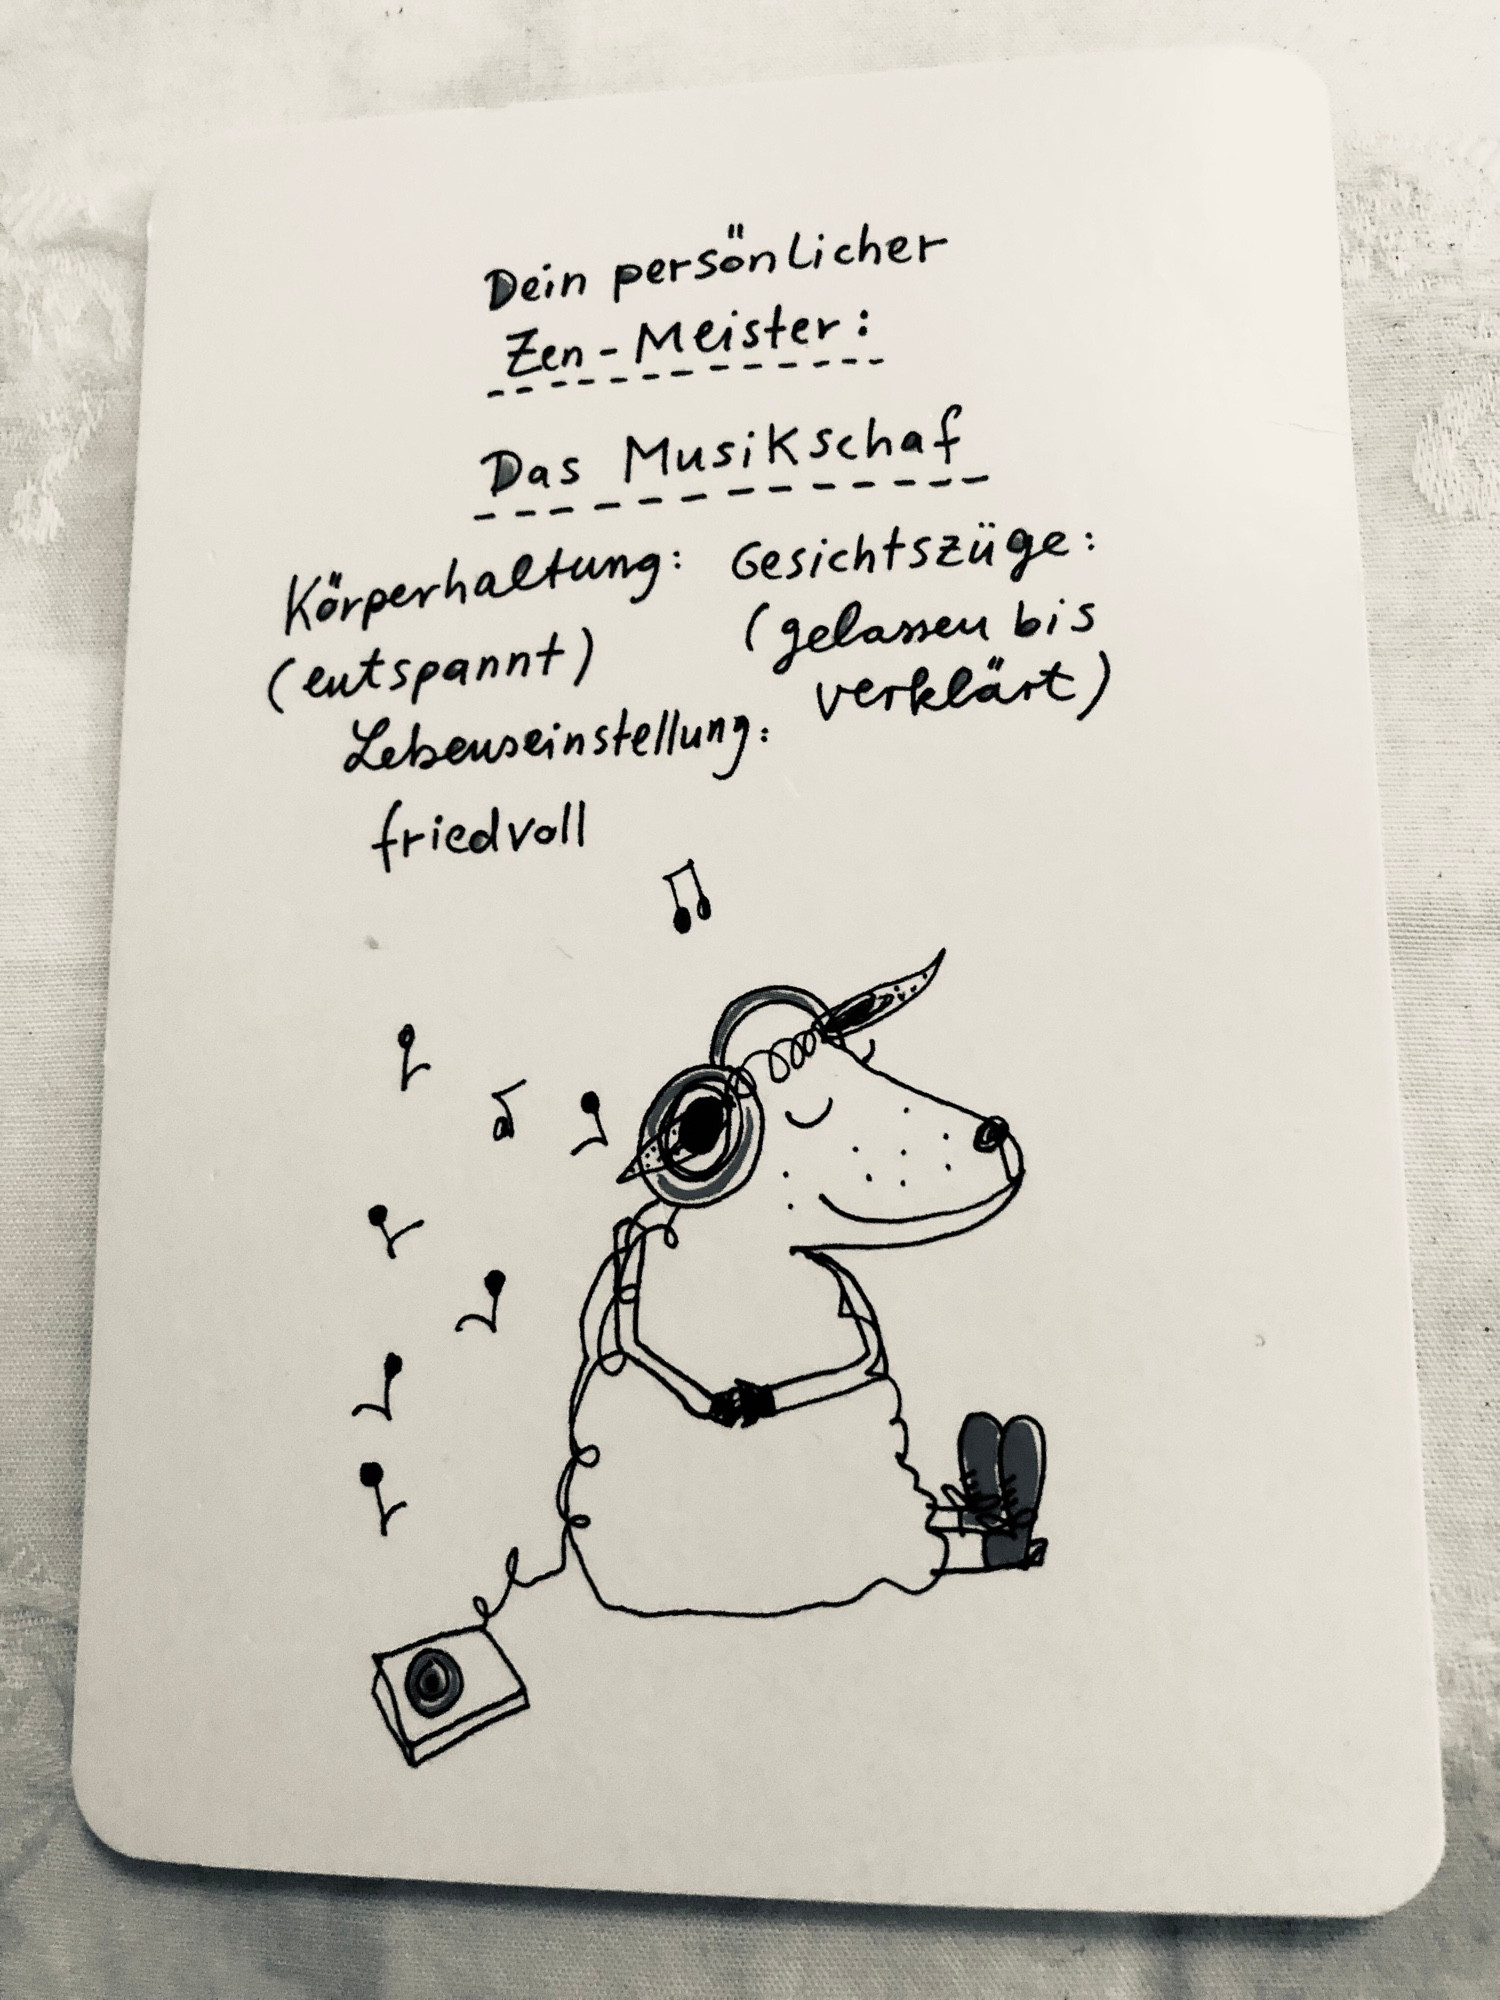 Dein persönlicher
Zen-Meister:
Das Musikschaf
Körperhaltung:
(entspannt)
Gesichtszüge:
(gelassen bis
verklärt)
Lebenseinstellung:
friedvoll